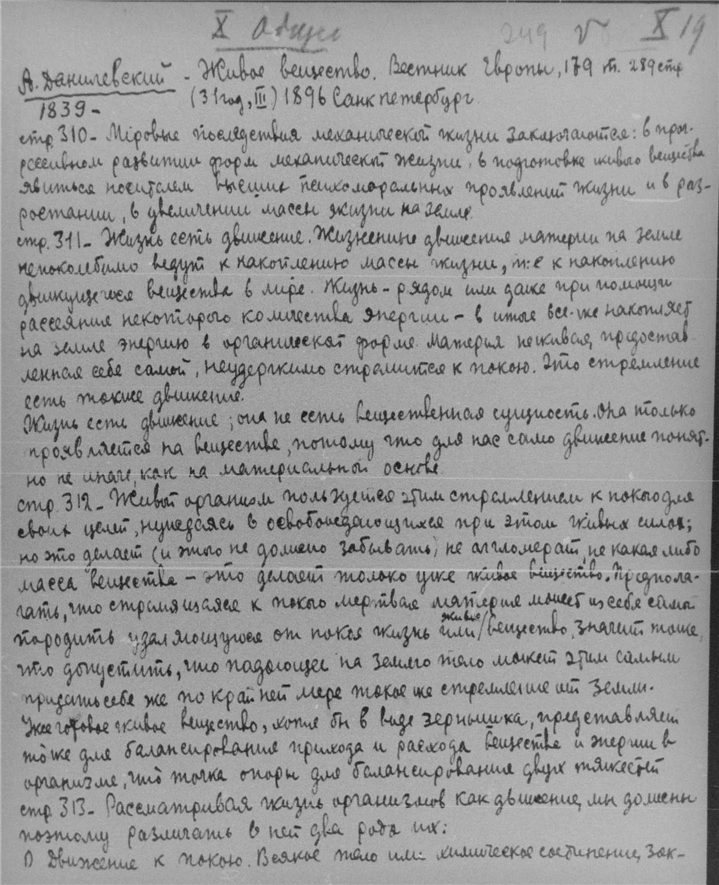 X Общее 249 V X 19
А. Данилевский - Живое вещество. Вестник Европы, 179 т. 289 стр
1839- (31 год, III) 1896 Санкпетербург
стр. 310- Мировые последствия механической жизни заключаются: в прог-
рессивном развитии форм механической жизни, в подготовке живого вещества
явиться носителем высших психоморальных проявлений жизни и в раз-
ростании, в увеличении массы жизни на земле.
стр. 311- Жизнь есть движение. Жизненные движения материи на земле
непоколебимо ведут к накоплению массы жизни, т:е к накоплению
движущегося вещества в мире. Жизнь - рядом или даже при помощи
рассеяния некоторого количества энергии - в итоге все-же накопляет
на земле энергию в органической форме. Материя неживая, предостав-
ленная себе самой, неудержимо стремится к покою. Это стремление
есть тоже движение.
Жизнь есть движение; она не есть вещественная сущность. Она только
проявляется на веществе, потому что для нас само движение понят-
но не иначе, как на материальной основе.
стр. 312- Живой организм пользуется этим стремлением к покою для
своих целей, нуждаясь в освобождающихся при этом живых силах;
но это делает (и этого не должно забывать) не агломерат, не какая либо
масса вещества - это делает только уже живое вещество. Предпола-
гать, что стремящаяся к покою мертвая материя может из себя сама
породить удаляющуюся от покоя жизнь или/живое/вещество, значит тоже,
что допустить, что падающее на землю тело может этим самым
придать себе же по крайней мере такое же стремление от земли.
Уже готовое живое вещество, хотя бы в виде зернышка, представляет
тоже для балансирования прихода и расхода вещества и энергии в
организме, что точка опоры для балансирования двух тяжестей
стр. 313- Рассматривая жизнь организмов как движение, мы должны
поэтому различать в ней два рода их:
1) Движение к покою. Всякое тело или химическое соединение, зак-